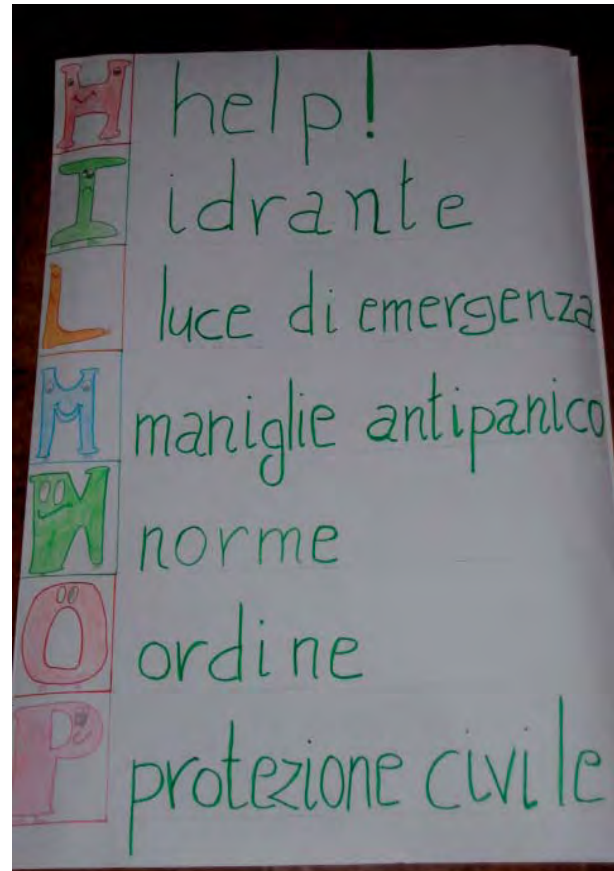 H help!
I idrante
L luce di emergenza
M maniglie antipanico
N norme
O ordine
P protezione civile